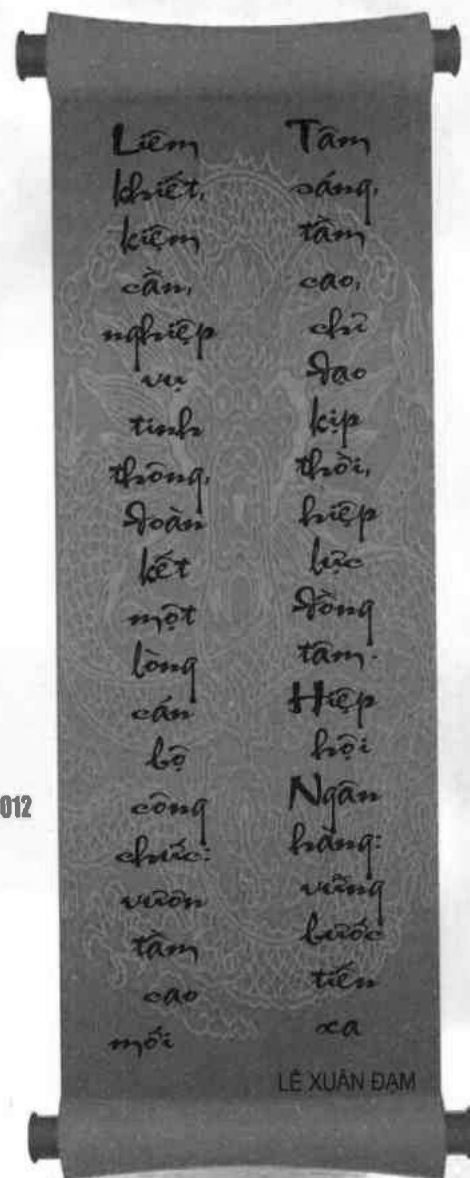 Liêm
khiết,
kiệm
cần,
nghiệp
vụ
tinh
thông,
đoàn
kết
một
lòng
cán
bộ
công
chức:
vươn
tầm
cao
mới
Tâm
sáng,
tầm
cao,
chỉ
đạo
kịp
thời,
hiệp
lực
đồng
tâm.
Hiệp
hội
Ngân
hàng:
vững
bước
tiến
xa
LÊ XUÂN ĐẠM
012